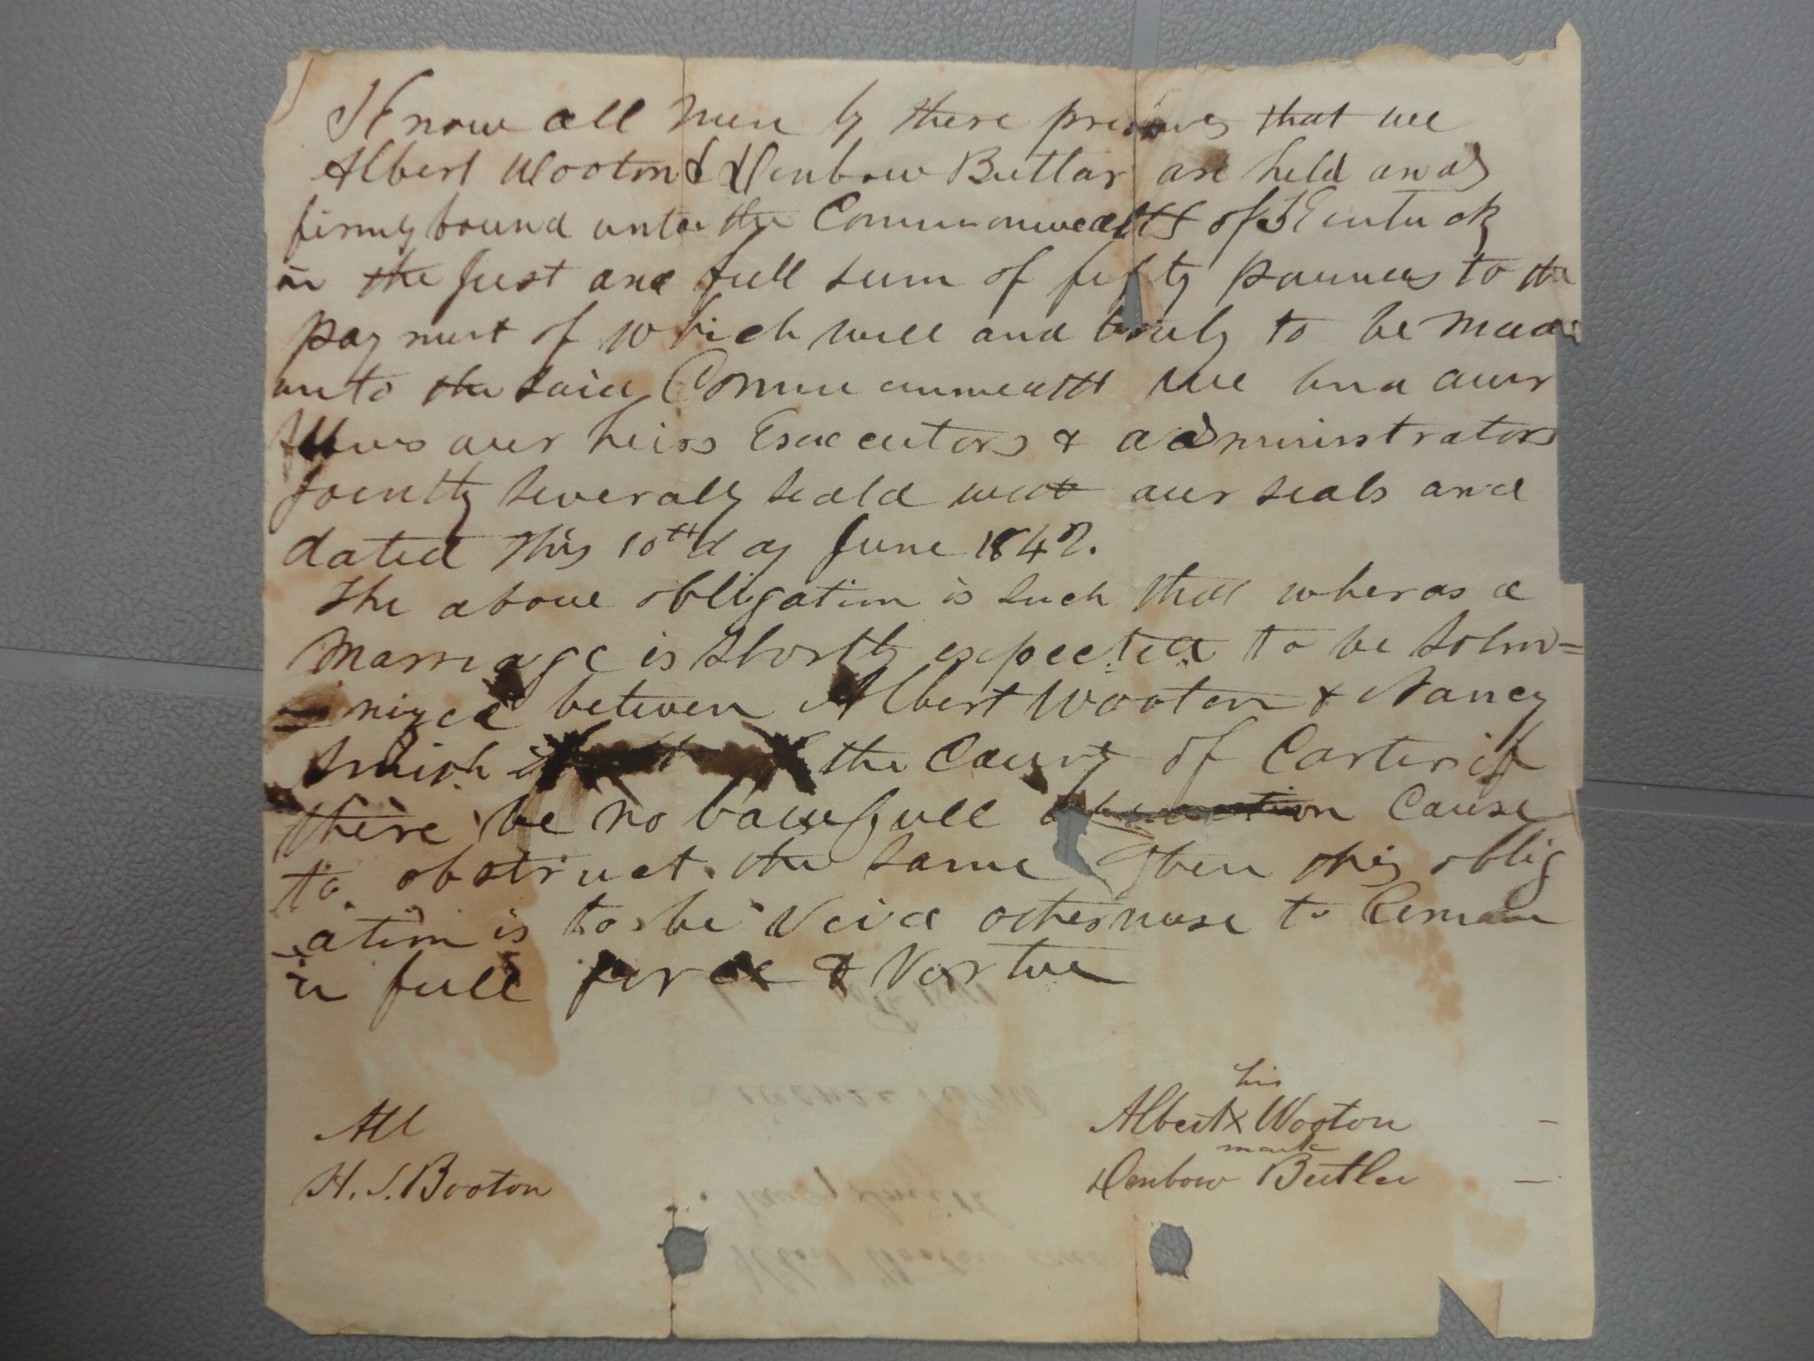 Know all men by these presents that we
Albert Wooton & Denbow Butlar are held and
firmly bound unto the Commonwealth of Kentuck
in the just and full sum of fifty pounds to the
payment of which well and truly to be made
unto the said Commonwealth we bind our
our heirs Exsecutors & administrators
Jointly severaly seald with our seals and
dated this 10th day June 1842.
The above obligation is such that wheras a
Marriage is shortly expected to be solem=
=nized between Albert Wooton & Nancy
Smith the County of Carter if
there be no lawfull obstruction Cause
to obstruct the same then this oblig
ation is to be Void otherwise to Remain
in full force & Vertue
his
Att Albert X Wooton
mark
H. S. Booton Denbow Butler
Nancy Smith
Albert Wooton